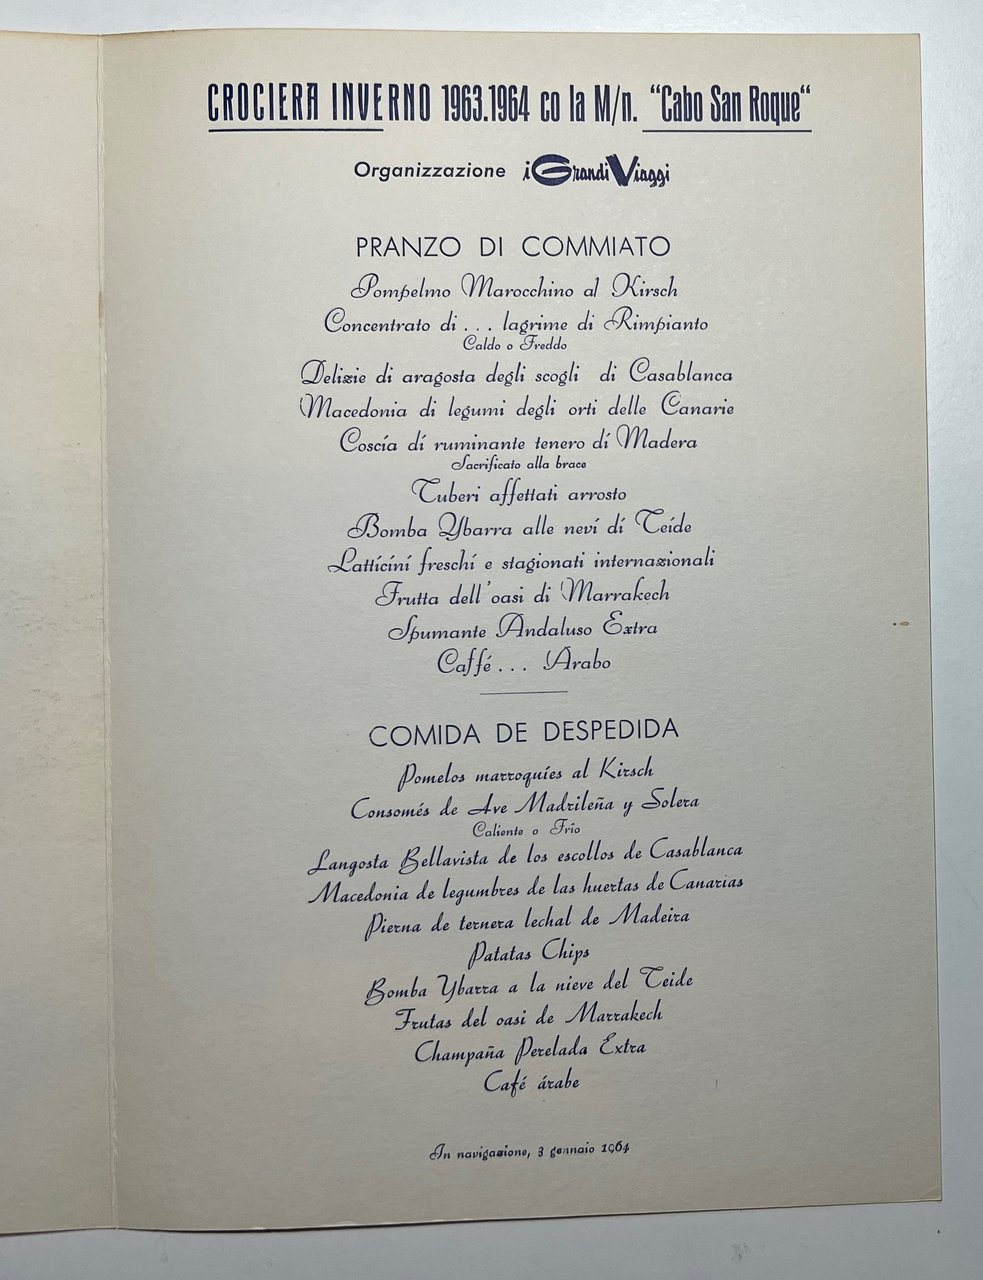 CROCIERA INVERNO 1963.1964 co la M/n. “Cabo San Roque“
Organizzazione i Grandi Viaggi
PRANZO DI COMMIATO
Pompelmo Marocchino al Kirsch
Concentrato di . . . lagrime di Rimpianto
Caldo o Freddo
Delizie di aragosta degli scogli di Casablanca
Macedonia di legumi degli orti delle Canarie
Coscía dí ruminante tenero dí Madera
Sacrificato alla brace
Tuberi affettati arrosto
Bomba Ybarra alle neví dí Teíde
Latticíní freschí e stagionati internazionali
Frutta dell'oasi di Marrakech
Spumante Andaluso Extra
Caffé . . . Arabo
COMIDA DE DESPEDIDA
Pomelos marroquíes al Kirsch
Consomés de Ave Madrileña y Solera
Caliente o Frío
Langosta Bellavista de los escollos de Casablanca
Macedonia de legumbres de las huertas de Canarias
Pierna de ternera lechal de Madeira
Patatas Chips
Bomba Ybarra a la nieve del Teide
Frutas del oasi de Marrakech
Champaña Perelada Extra
Café árabe
In navigazione, 3 gennaio 1964